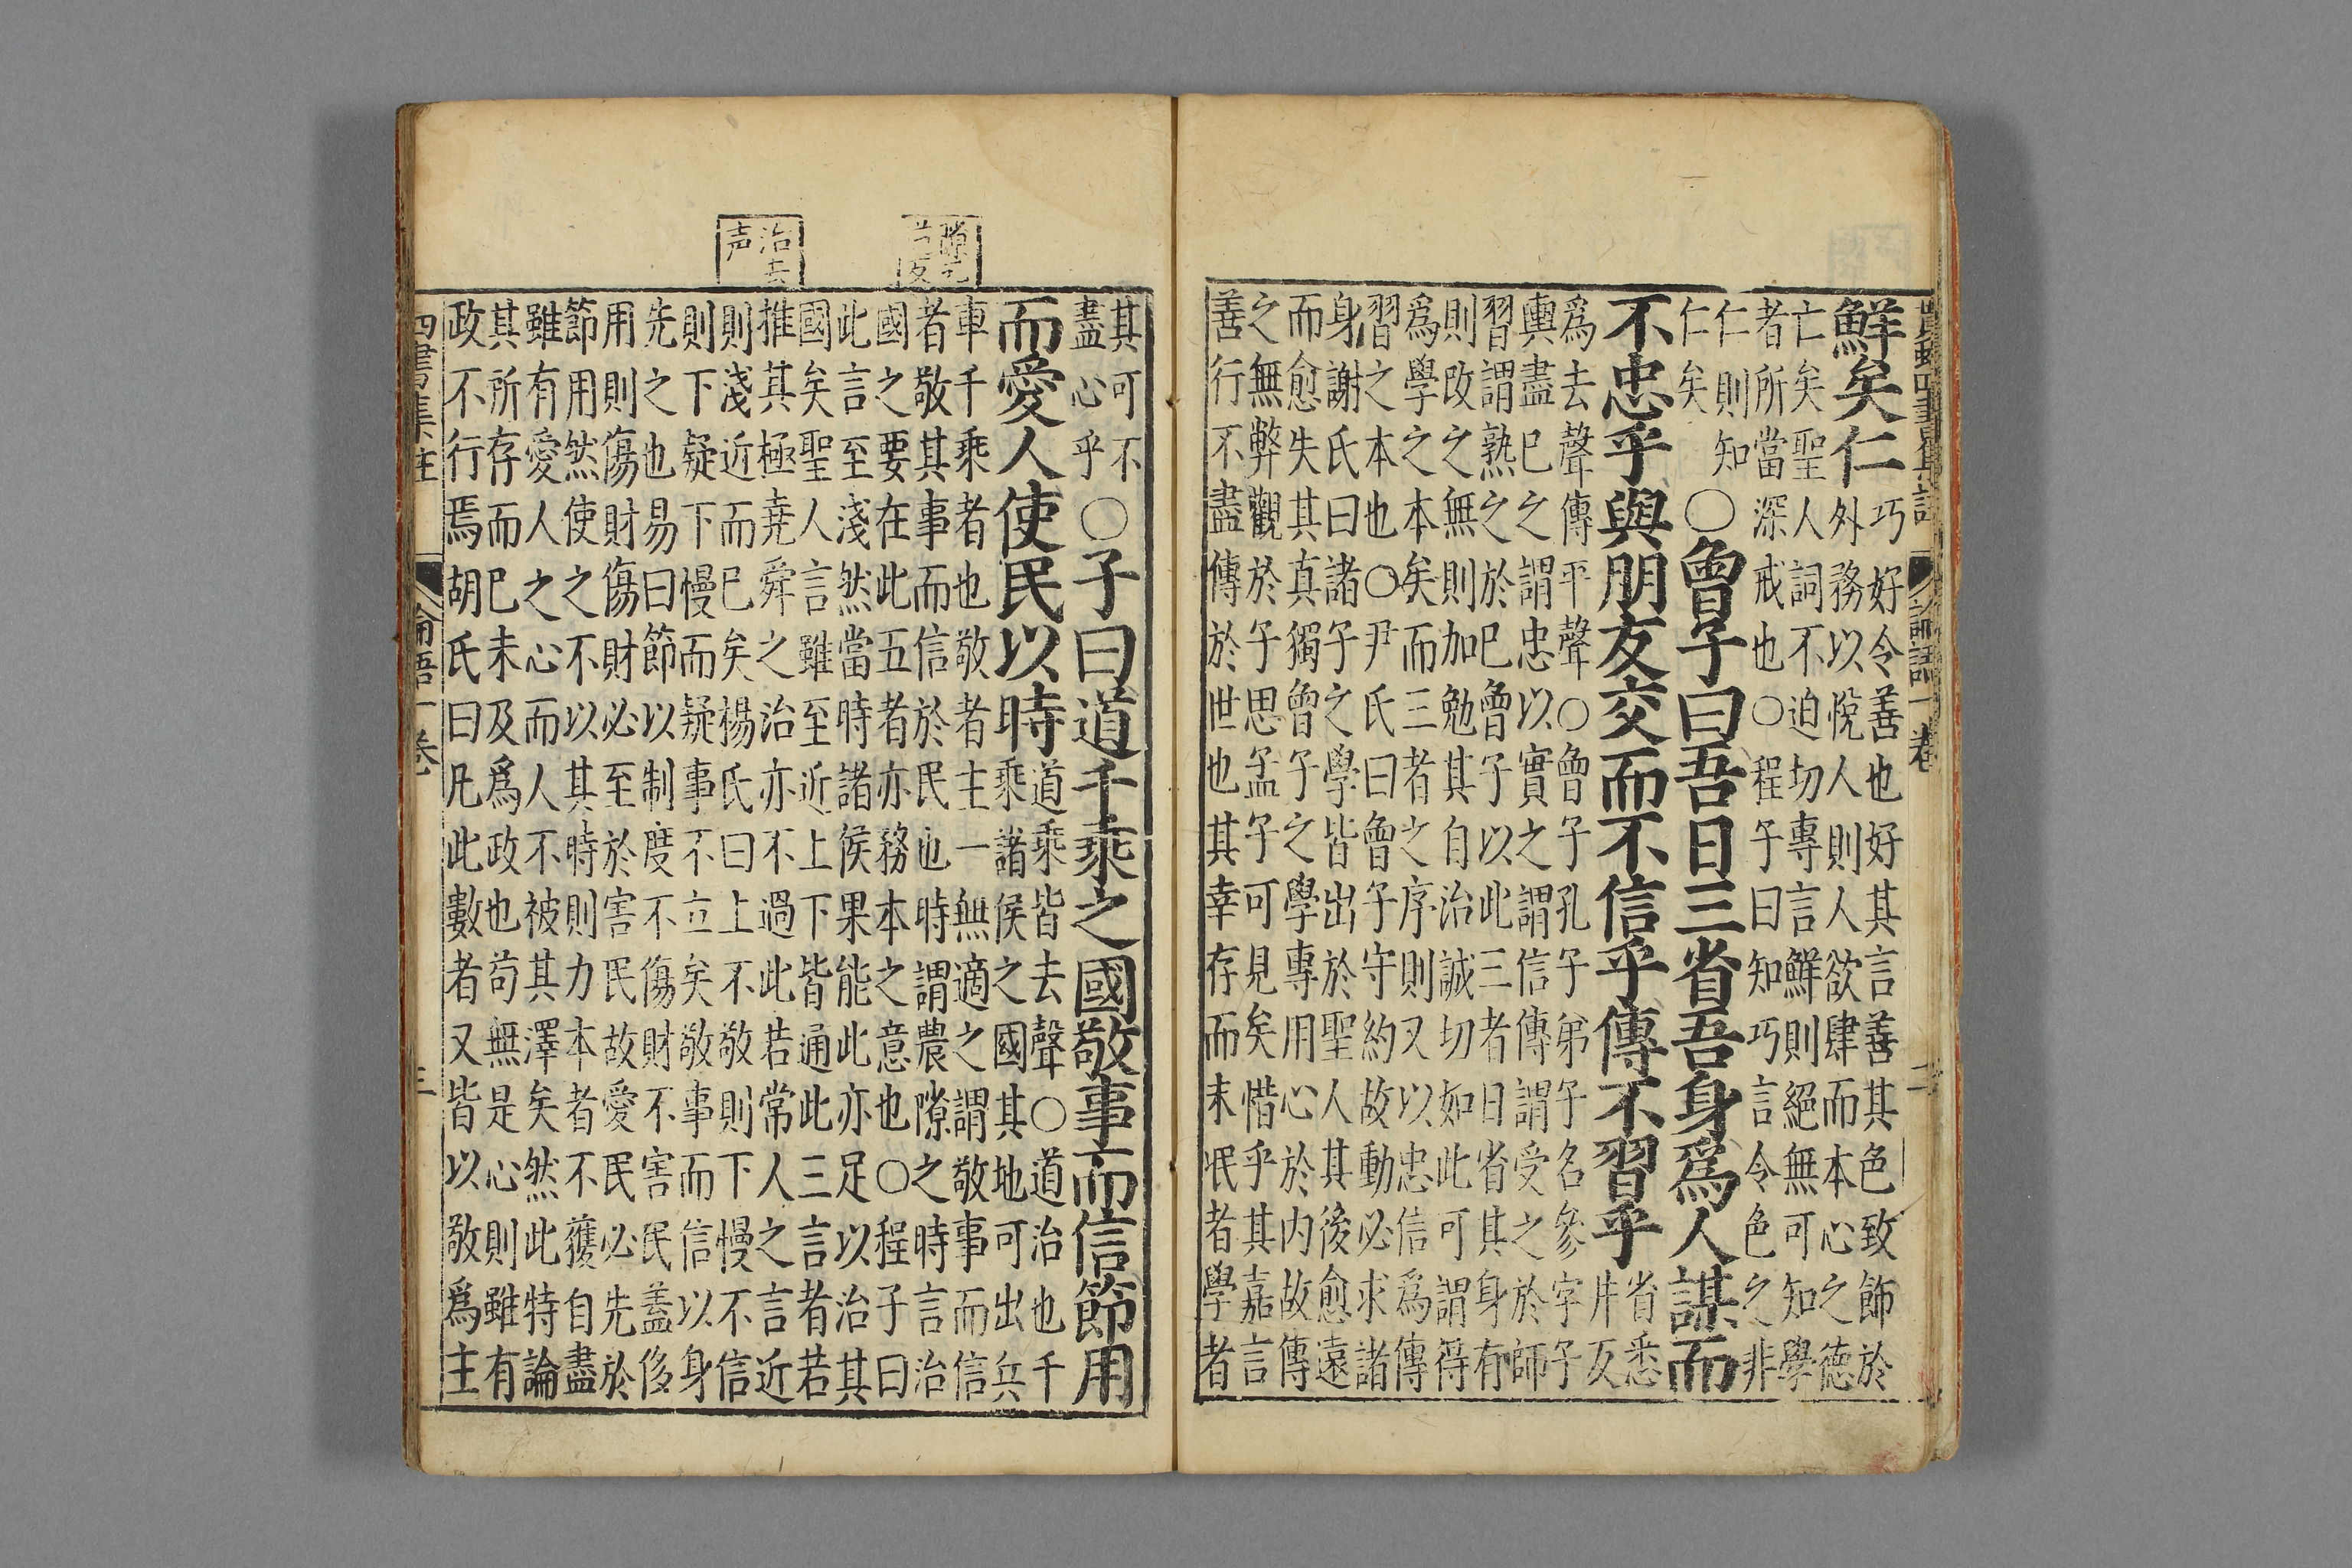 論語一卷
鮮矣仁
巧好令善也好其言善其色致飾於
外務以悅人則人欲肆而本心之德
亡矣聖人詞不迫切專言鮮則絕無可知學
者所當深戒也○程子曰知巧言令色之非
仁則知
仁矣
○曾子曰吾日三省吾身爲人謀而
不忠乎與朋友交而不信乎傳不習乎
省悉
井反
爲去聲傳平聲○曾子孔子弟子名參字子
輿盡已之謂忠以實之謂信傳謂受之於師
習謂熟之於已曾子以此三者日省其身有
則改之無則加勉其自治誠切如此可謂得
爲學之本矣而三者之序則又以忠信爲傳
習之本也○尹氏曰曾子守約故動必求諸
身謝氏曰諸子之學皆出於聖人其後愈遠
而愈失其真獨曾子之學專用心於内故傳
之無弊觀於子思孟子可見矣惜乎其嘉言
善行不盡傳於世也其幸存而未泯者學者
其可不
盡心乎
○子曰道千乘之國敬事而信節用
而愛人使民以時
道乘皆去聲○道治也千
乘諸侯之國其地可出兵
車千乘者也敬者主一無適之謂敬事而信
者敬其事而信於民也時謂農隙之時言治
國之要在此五者亦務本之意也○程子曰
此言至淺然當時諸侯果能此亦足以治其
國矣聖人言雖至近上下皆通此三言者若
推其極堯舜之治亦不過此若常人之言近
則淺近而已矣楊氏曰上不敬則下慢不信
則下疑下慢而疑事不立矣敬事而信以身
先之也易曰節以制度不傷財不害民蓋侈
用則傷財傷財必至於害民故愛民必先於
節用然使之不以其時則力本者不獲自盡
雖有愛人之心而人不被其澤矣然此特論
其所存而已未及爲政也苟無是心則雖有
政不行焉胡氏曰凡此數者又皆以敬爲主
治去
声
四書集註
論語一卷
三